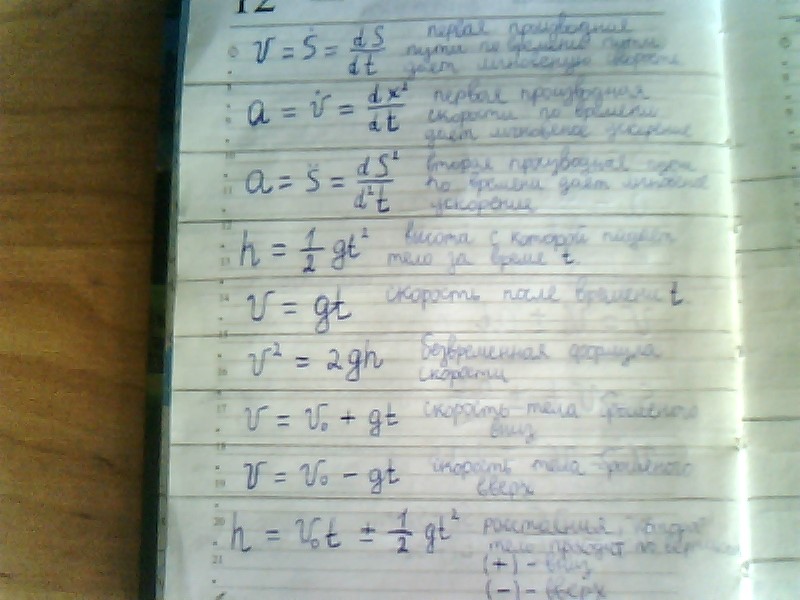 12
v = Ṡ = dS/dt первая производная
пути по времени пути
даёт мгновенную скорость
a = v̇ = dx²/dt первая производная
скорости по времени
даёт мгновенное ускорение
a = S̈ = dS²/d²t вторая производная пути
по времени даёт мгновенное
ускорение
h = 1/2 gt² высота с которой падает
тело за время t.
v = gt скорость после времени t.
v² = 2gh безвременная формула
скорости
v = v₀ + gt скорость тела брошеного
вниз
v = v₀ - gt скорость тела брошеного
вверх
h = v₀t ± 1/2 gt² расстояния,
тело пройдёт по
(+) - вниз
(-) - вверх